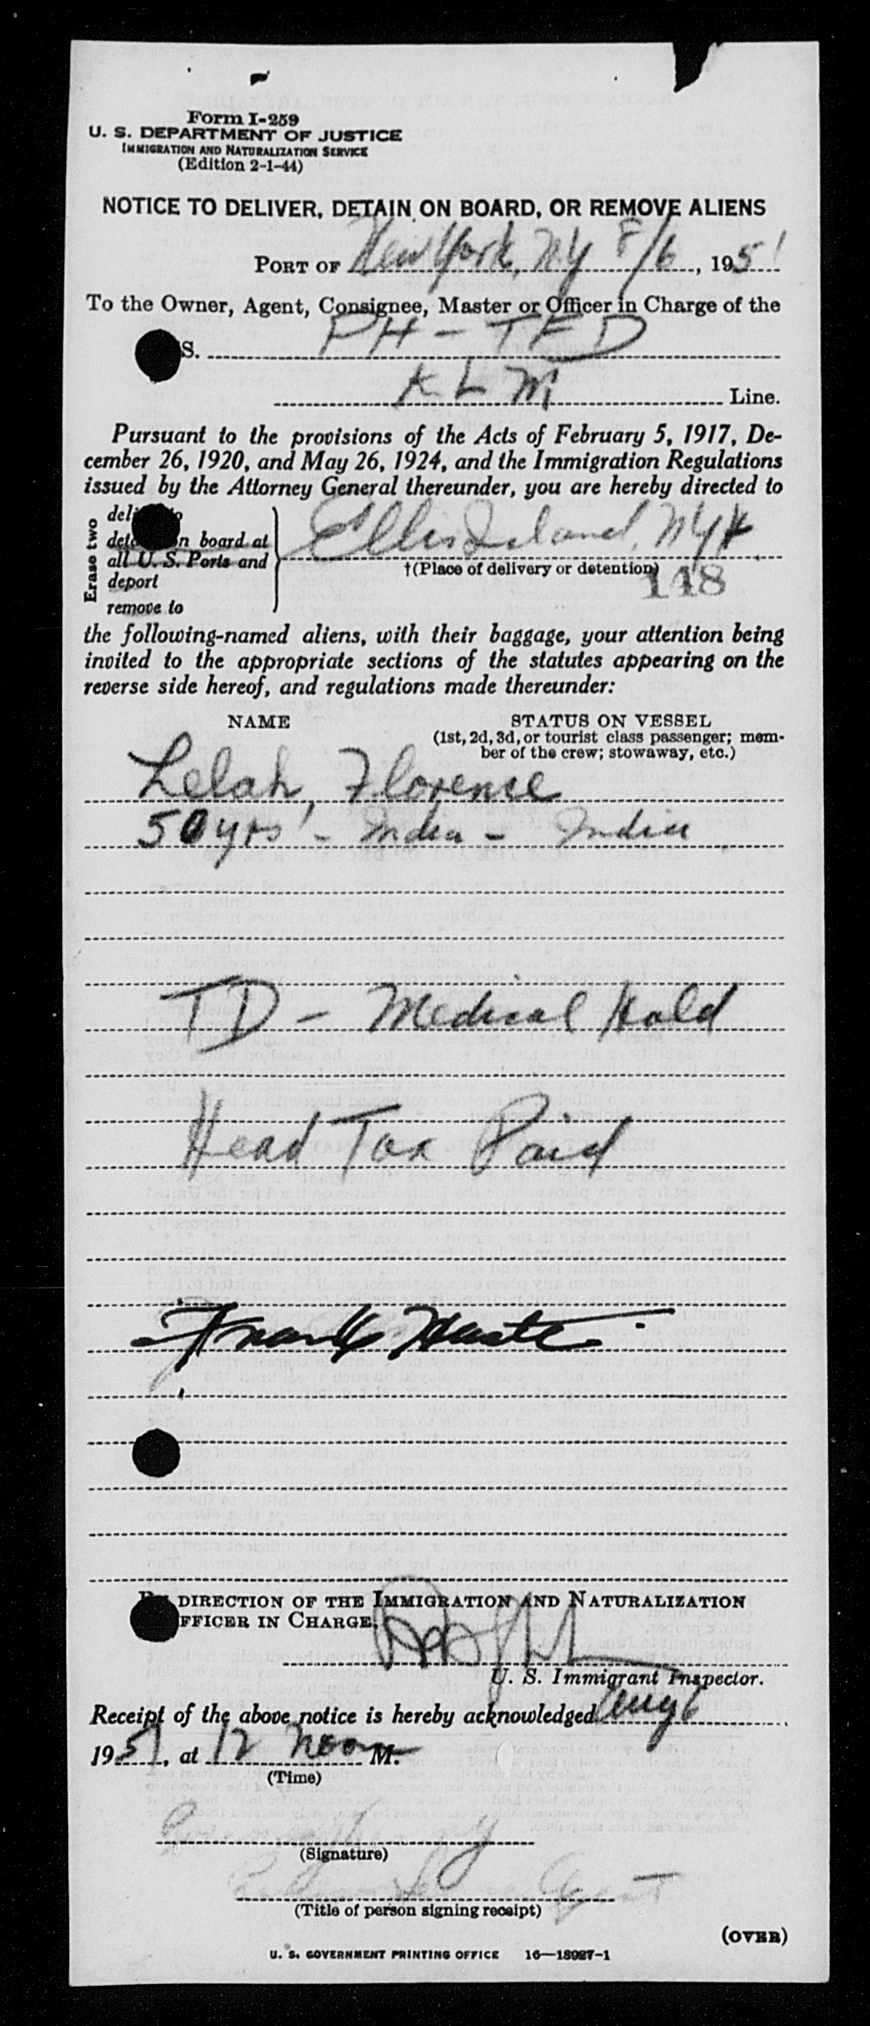 Form I-259
U. S. DEPARTMENT OF JUSTICE
IMMIGRATION AND NATURALIZATION SERVICE
(Edition 2-1-44)
NOTICE TO DELIVER, DETAIN ON BOARD, OR REMOVE ALIENS
PORT OF New York, NY 8/6, 1951
To the Owner, Agent, Consignee, Master or Officer in Charge of the
S. PH-TFD
KLM Line.
Pursuant to the provisions of the Acts of February 5, 1917, De-
cember 26, 1920, and May 26, 1924, and the Immigration Regulations
issued by the Attorney General thereunder, you are hereby directed to
Erase two
board at
all U. S. Ports and
deport
remove to
Ellis Island, NYH.
†(Place of delivery or detention)
148
the following-named aliens, with their baggage, your attention being
invited to the appropriate sections of the statutes appearing on the
reverse side hereof, and regulations made thereunder:
NAME
STATUS ON VESSEL
(1st, 2d, 3d, or tourist class passenger; mem-
ber of the crew; stowaway, etc.)
Lelah, Florence
50 yrs - India - India
TD - Medical Hold
Head Tax Paid
Frank
DIRECTION OF THE IMMIGRATION AND NATURALIZATION
FFICER IN CHARGE.
U. S. Immigrant Inspector.
Receipt of the above notice is hereby acknowledged Aug 6
1951, at 12 noon M.
(Time)
(Signature)
Agent
(Title of person signing receipt)
(OVER)
U. S. GOVERNMENT PRINTING OFFICE 16—18927-1